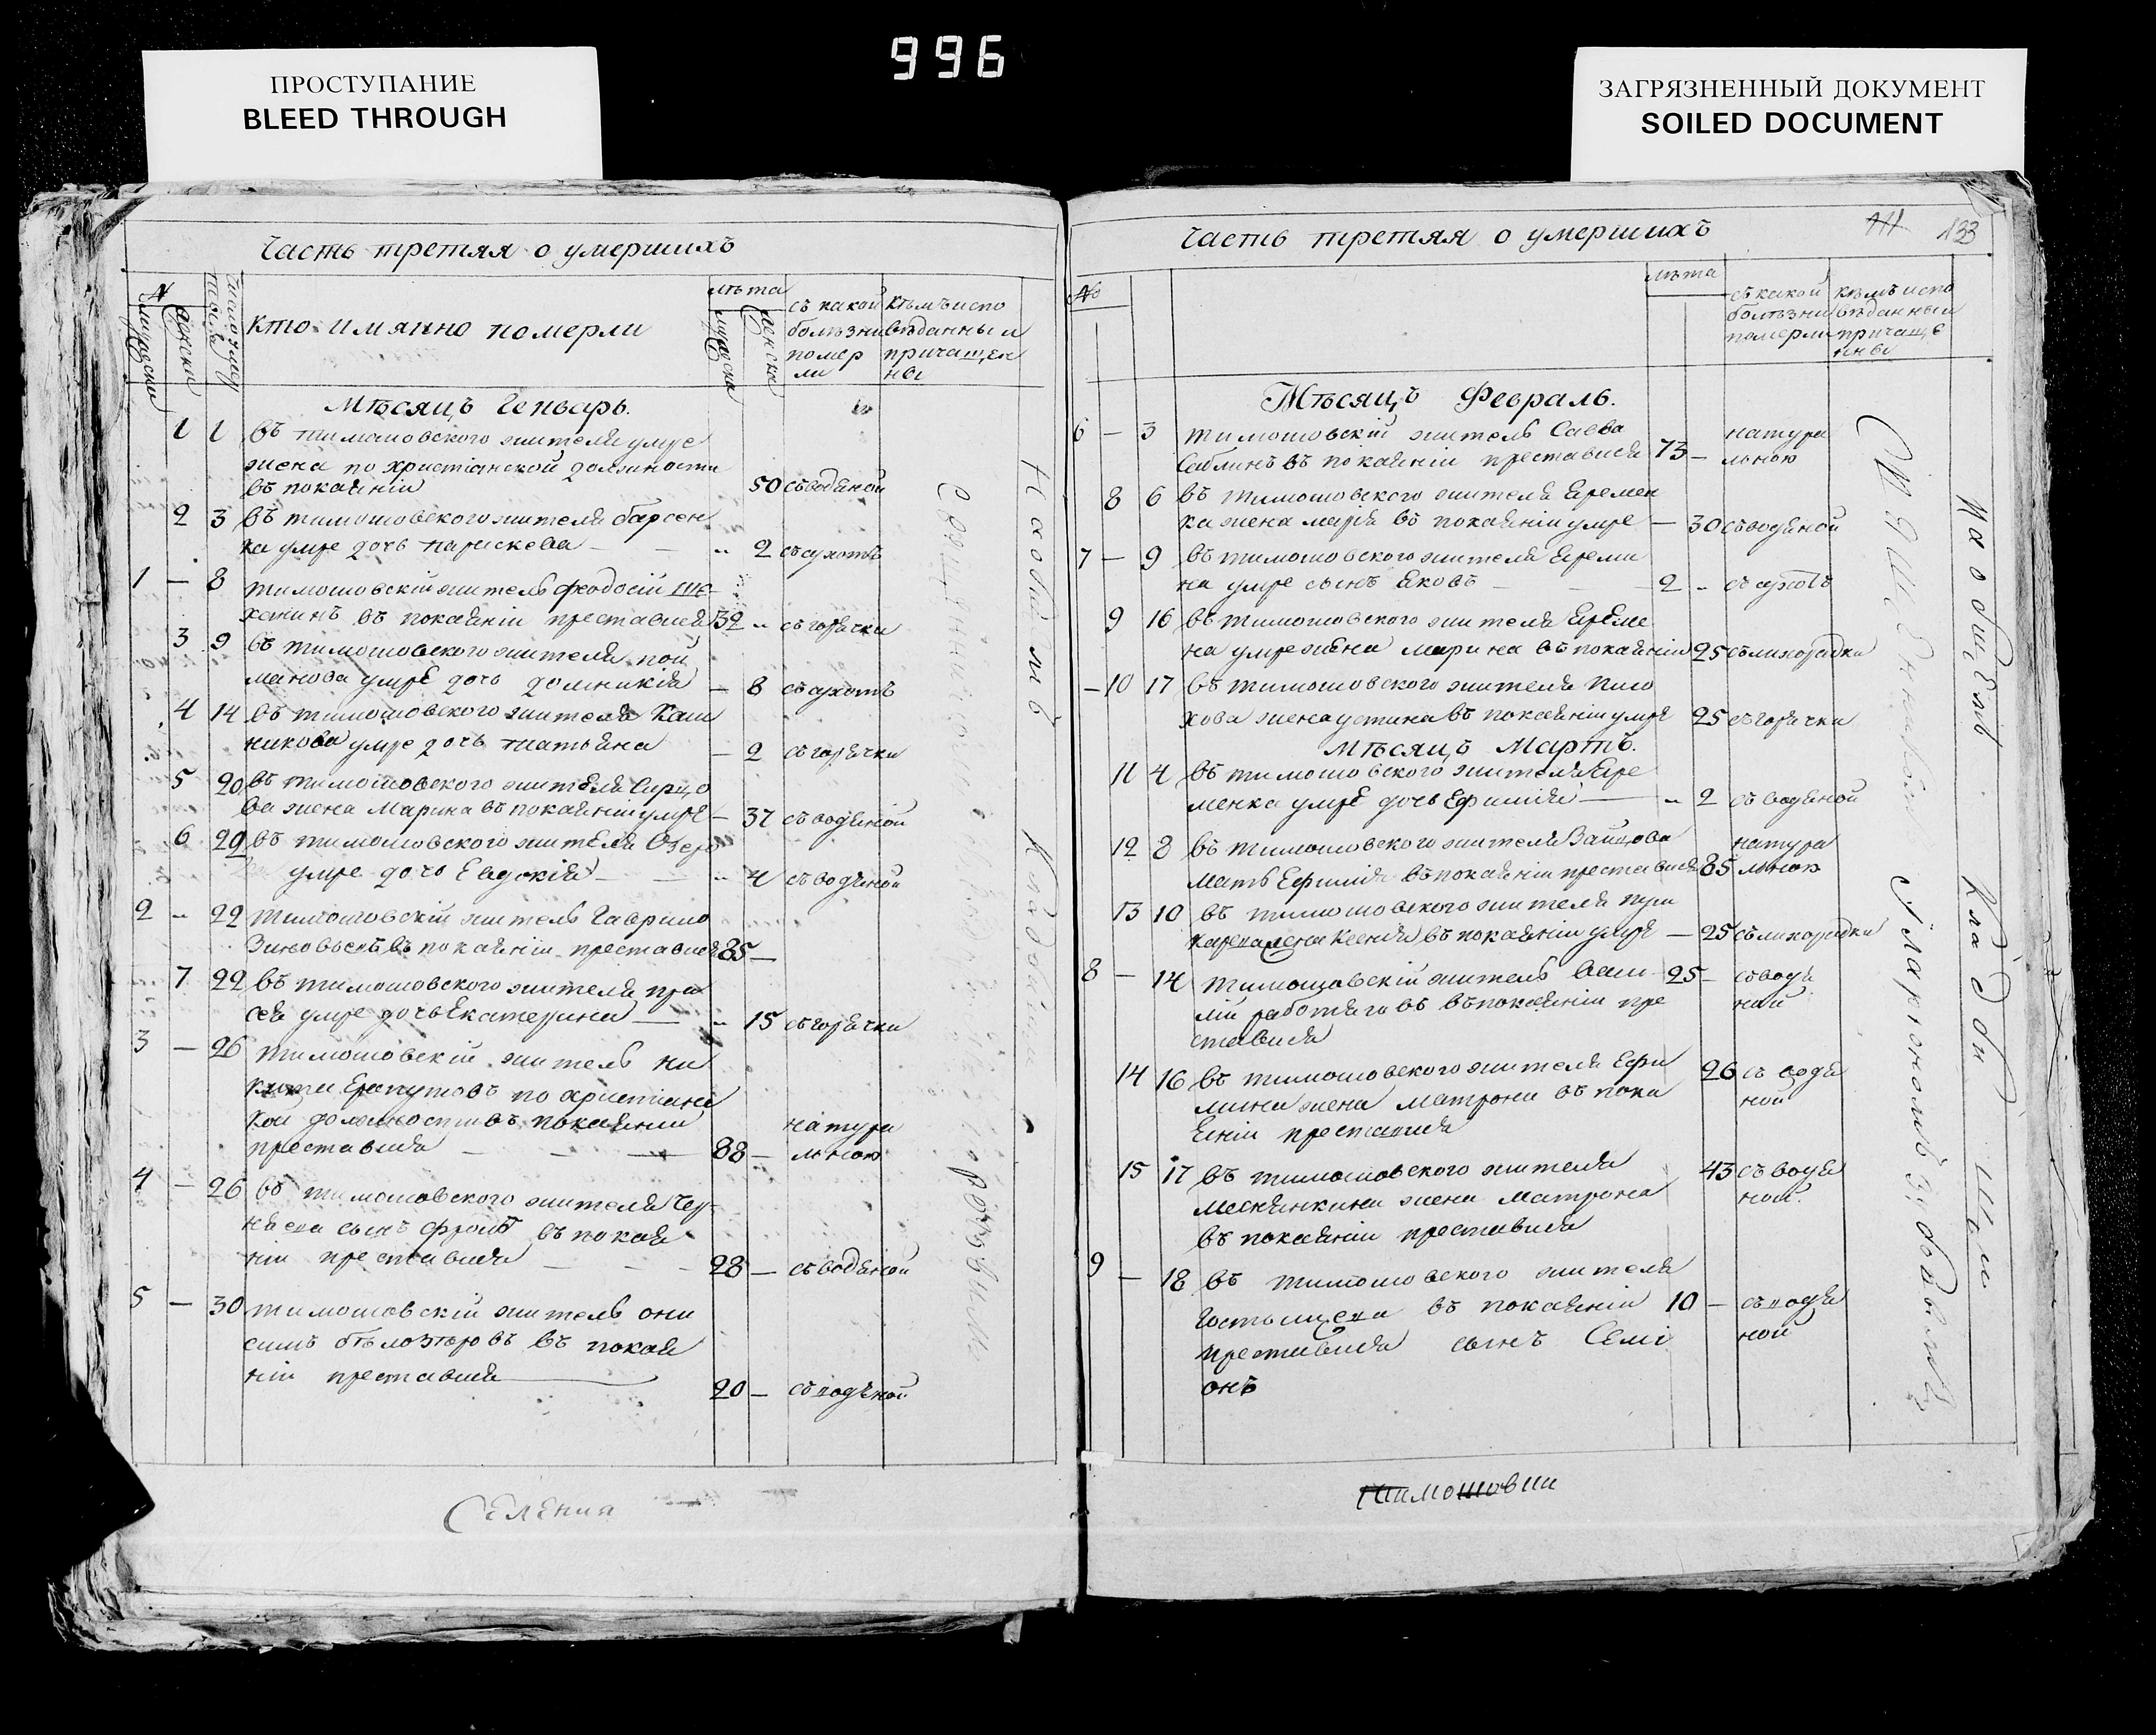 996
ПРОСТУПАНИЕ
BLEED THROUGH
ЗАГРЯЗНЕННЫЙ ДОКУМЕНТ
SOILED DOCUMENT
Часть третяя о умершихъ
№
мужеска
женска
лѣта
кто имянно померли
мужеска
женска
съ какой
болѣзни
помер
ли
кѣмъ испо
вѣданны и
причащен
ны
Мѣсяцъ Генварь.
1 1 въ тимошовского жителя умре
жена по христіанской должности
въ покаяніи 50 съ водяной
2 3 въ тимошовского жителя барсен
ка умре дочь параскева — „ 2 съ сухотъ
1 — 8 тимошовскій житель феодосій
въ покаяніи преставися 32 „ съ горячки
3 9 въ тимошовского жителя пой
манова умре дочь домникія — 8 съ сухотъ
4 14 въ тимошовского жителя Каш
никова умре дочь татьяна — 2 съ горячки
5 20 въ тимошовского жителя
ва жена Марина въ покаяніи умре — 37 съ водяной
6 22 въ тимошовского жителя
умре дочь Евдокія — „ 4 съ водяной
2 „ 22 тимошовскій житель Гаврило
Зиновьевъ въ покаяніи преставися 85 —
7 22 въ тимошовского жителя
умре дочь Екатерина — „ 15 съ горячки
3 — 26 тимошовскій житель ни
кита по христіанс
кой должности въ покаяніи натура
преставися — 88 — льною
4 — 26 въ тимошовского жителя Чер
няева сынъ фролъ въ покая
ніи преставися — 28 — съ водяной
5 — 30 тимошовскій житель они
симъ въ покая
ніи преставися 20 — съ водяной
На общемъ кладбищи
Селения
Часть третяя о умершихъ
133
№
лѣта
съ какой
болѣзни
померли
кѣмъ испо
вѣданны и
причаще
нны
Мѣсяцъ Февраль.
6 — 3 тимошовскій житель Савва натура
Саблинъ въ покаяніи преставися 73 — льною
8 6 въ тимошовского жителя Еремен
ка жена марія въ покаяніи умре — 30 съ водяной
7 — 9 въ тимошовского жителя Ереми
на умре сынъ Яковъ — 2 „ съ сухотъ
9 16 въ тимошовского жителя Ереме
на умре жена марина въ покаяніи 25 съ лихорадки
— 10 17 въ тимошовского жителя
хова жена устина въ покаяніи умре 25 съ горячки
Мѣсяцъ Мартъ.
11 4 въ тимошовского жителя Ере
менка умре дочь Ефимія — „ 2 съ водяной
12 8 въ тимошовского жителя Зайцова натура
мать Ефимія въ покаяніи преставися 85 льною
13 10 въ тимошовского жителя пуш
карева жена Ксенія въ покаяніи умре — 25 съ лихорадки
8 — 14 тимошовскій житель васи 25 — съ водя
лій работяговъ въ покаяніи пре ной
ставися
14 16 въ тимошовского жителя Ефи 26 съ водя
мина жена матрона въ пока ной
яніи преставися
15 17 въ тимошовского жителя 43 съ водя
жена матрона ной
въ покаяніи преставися
9 — 18 въ тимошовского жителя
въ покаяніи 10 — съ водя
преставися сынъ Семі ной
онъ
На общемъ кладбищи
Священникомъ Іларіономъ
Тимошовки